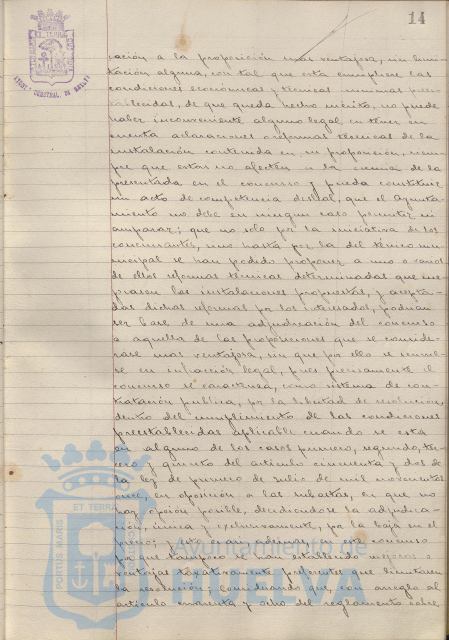 14
ET TERRA
cación a la proposición mas ventajosa, sin limi-
tación alguna, con tal que esta cumpliere las
condiciones económicas y técnicas minimas pree-
tablecidas, de que queda hecho mérito, no puede
haber inconveniente alguno legal en tener en
cuenta aclaraciones o reformas técnicas de la
instalación contenida en su proposición, siem-
pre que estas no afecten a la esencia de la
presentada en el concurso y pueda constituir
un acto de competencia desleal, que el Ayunta-
miento no debe en ningun caso permitir ni
amparar; que no solo por la iniciativa de los
concursantes, sino hasta por la del técnico mu-
nicipal se han podido proponer a uno o varios
de ellos reformas técnicas determinadas que me-
jorasen las instalaciones propuestas, y acepta-
das dichas reformas por los interesados, podrian
ser base de una adjudicación del concurso
a aquella de las proposiciones que se conside-
rase mas ventajosa, sin que por ello se incurrie-
se en infracción legal, pues precisamente el
concurso se caracteriza, como sistema de con-
tratación publica, por la libertad de resolución,
dentro del cumplimiento de las condiciones
preestablecidas aplicable cuando se está
en alguno de los casos primero, segundo, ter-
cero y quinto del articulo cincuenta y dos de
la ley de primero de Julio de mil novecientos
once, en oposición a las subastas, en que no
hay opción posible, decidiendose la adjudica-
ción única y exclusivamente, por la baja en el
precio; y esto es asi, ademas, en este concurso
porque tampoco se han establecido mejoras o
ventajas taxativamente preferentes que limitaren
la resolución; Considerando que, con arreglo al
articulo cuarenta y ocho del reglamento sobre
ET TERRA
PORTUS MARIS
CUSTODIA
Ayuntamiento de
HUELVA